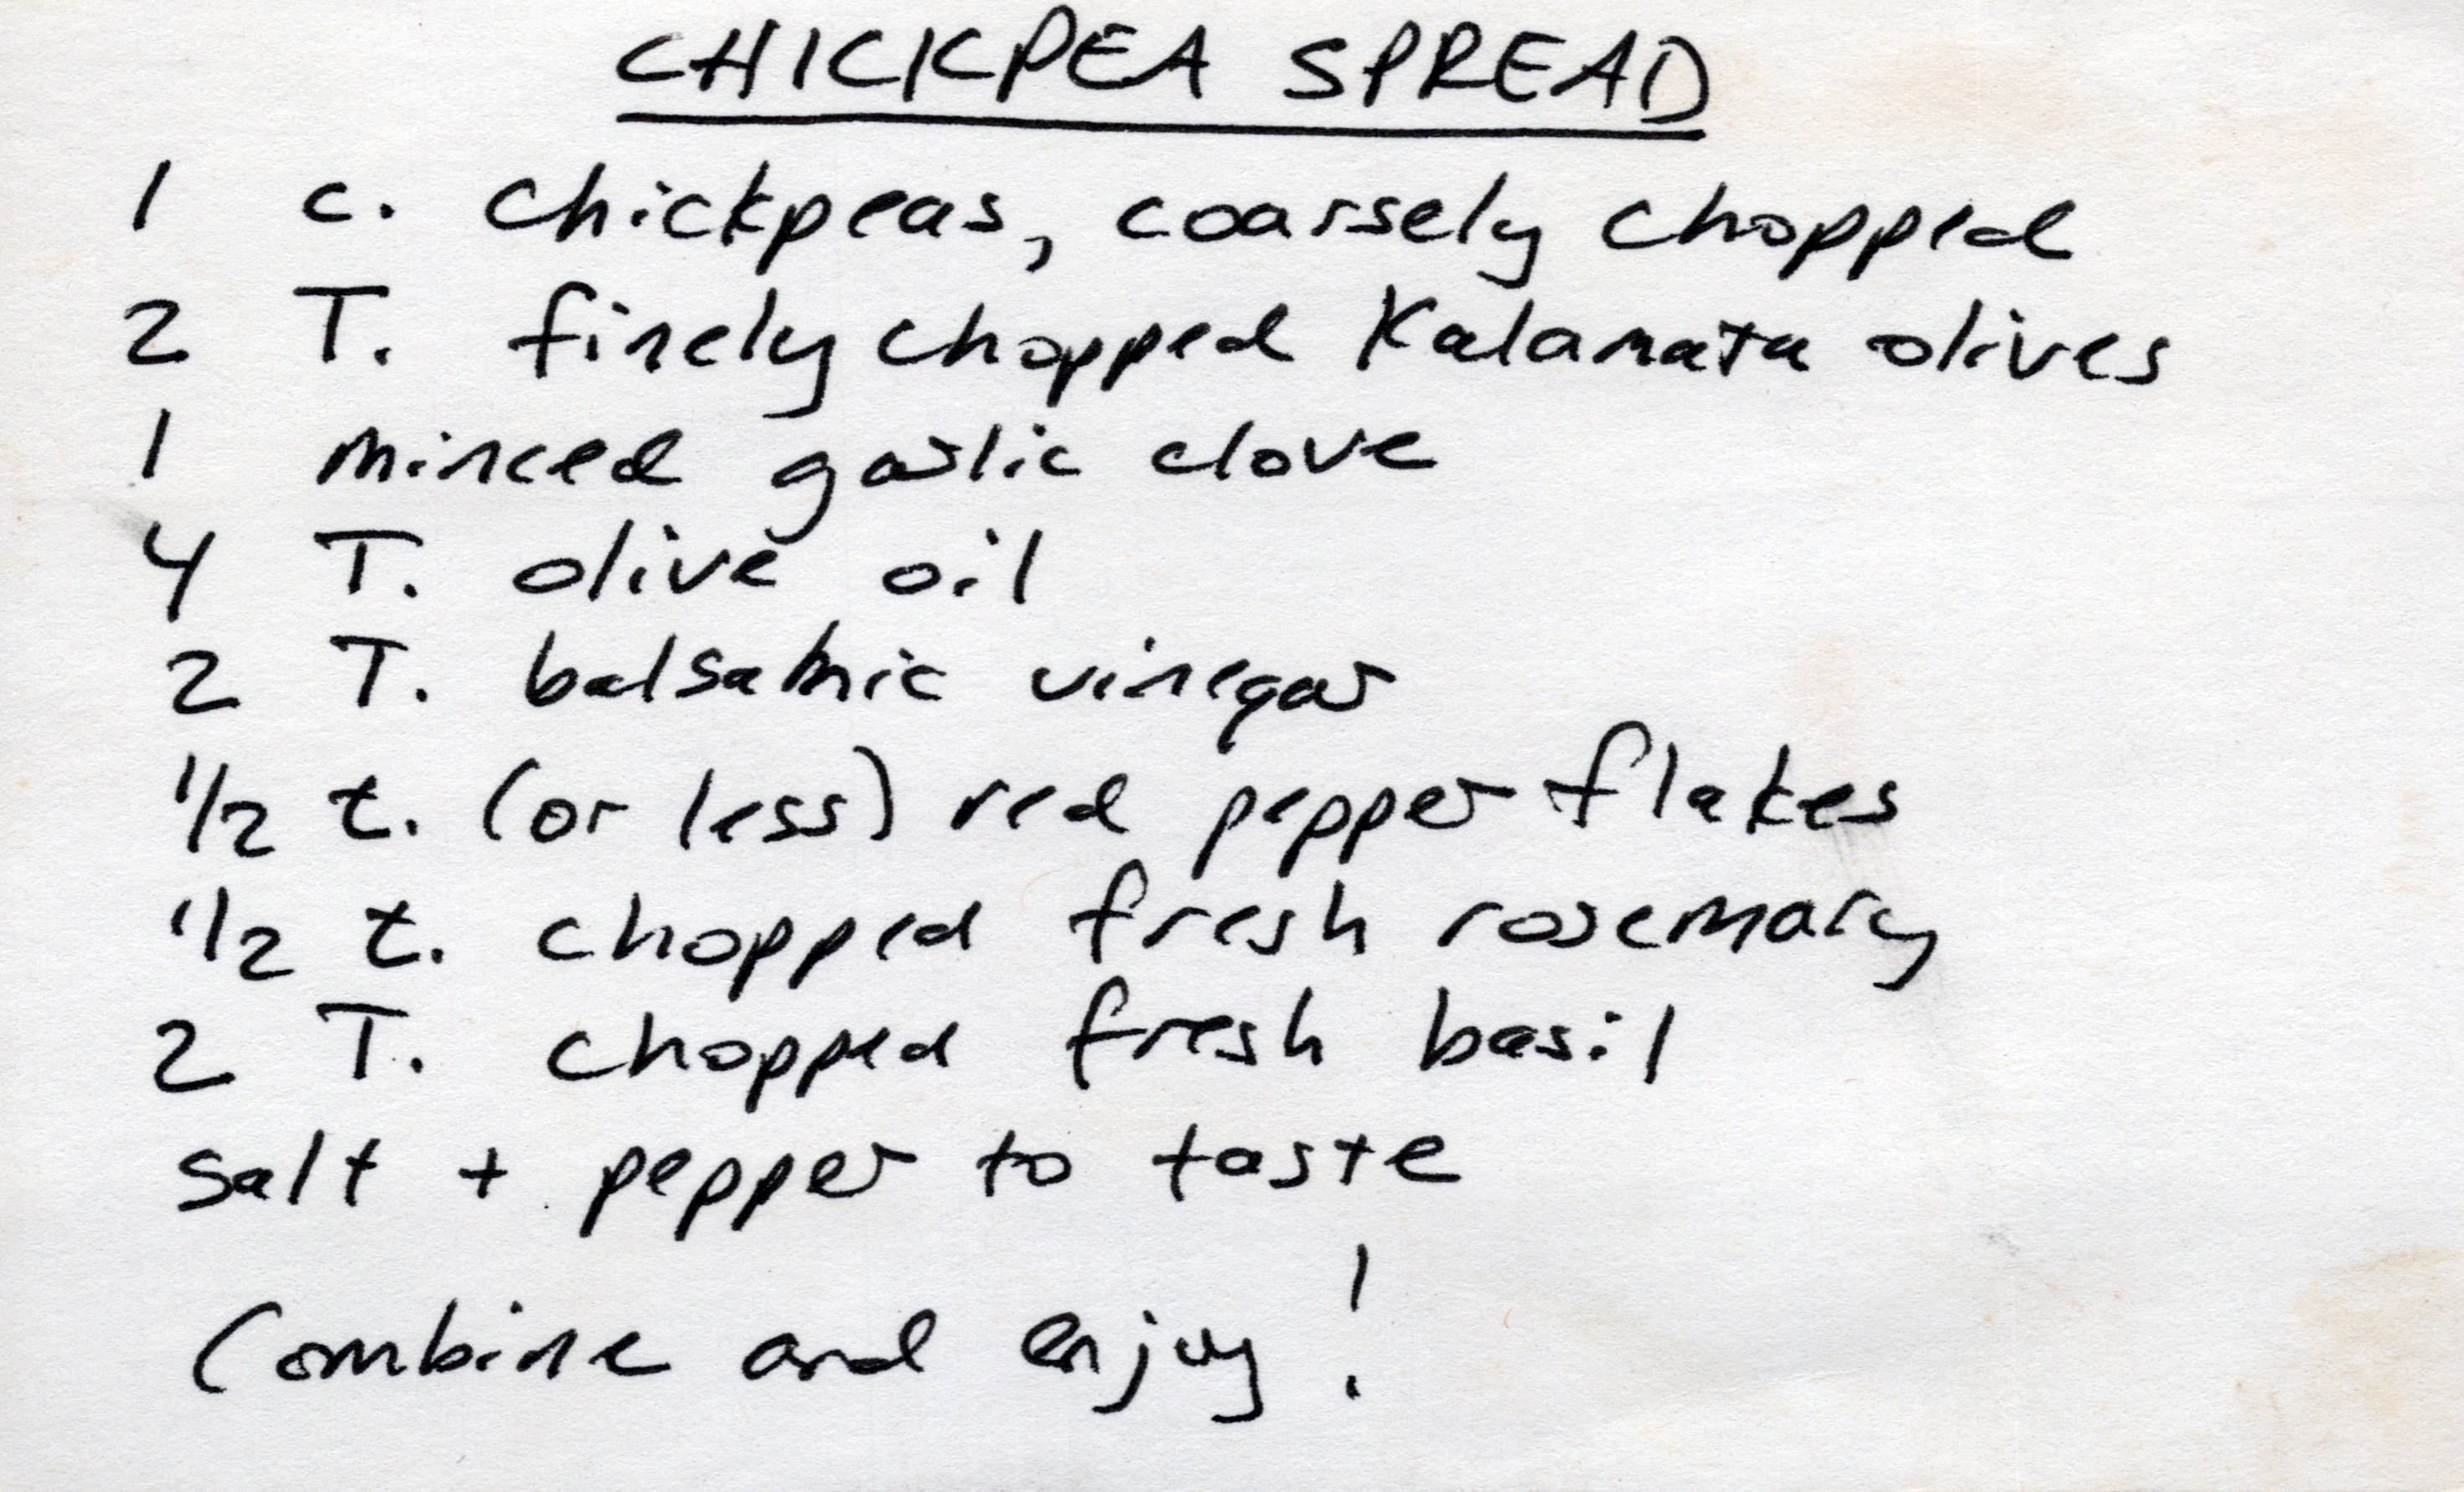 CHICKPEA SPREAD
1 c. chickpeas, coarssely chopped
2 T. finely chopped Kalamata olives
1 minced garlic clove
4 T. olive oil
2 T. balsamic vinegar
1/2 t. (or less) red pepper flakes
1/2 t. chopped fresh rosemary
2 T. chopped fresh basil
salt + pepper to taste
Combine and enjoy!